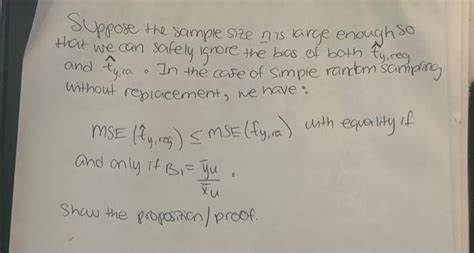 Suppose the sample size n is large enough so
that we can safely ignore the bias of both t̂y,reg
and t̂y,ra. In the case of simple random sampling
without replacement, we have:
MSE (t̂y,reg) ≤ MSE(t̂y,ra) with equality if
and only if B₁ = ȳu / x̄u.
Show the proposition/proof.